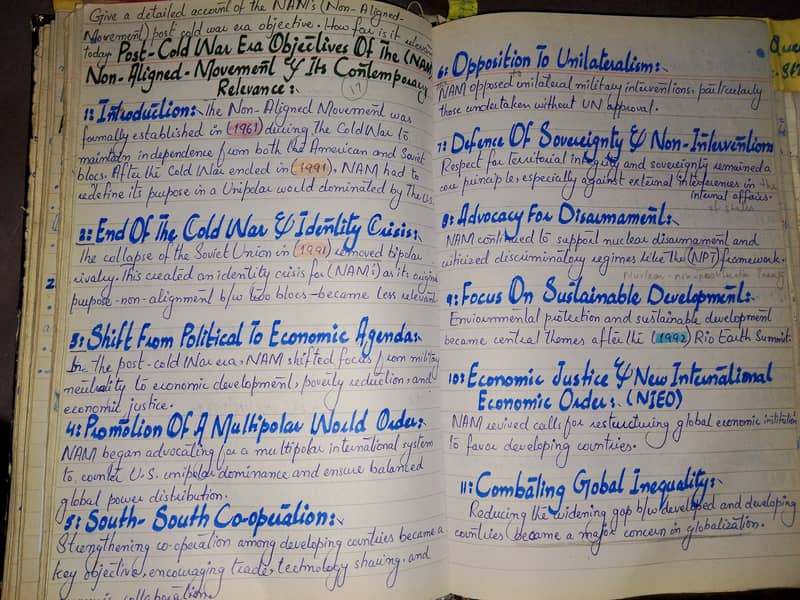 Give a detailed account of the NAM's (Non-Aligned-
Movement) post cold war era objective. How far is it relevant
today.
Post-Cold War Era Objectives Of The (NAM)
Non-Aligned-Movement & Its Contemporary
Relevance:
(17)
1: Introduction: The Non-Aligned Movement was
formally established in (1961) during the Cold War to
maintain independence from both the American and Soviet
blocs. After the Cold War ended in (1991), NAM had to
redefine its purpose in a Unipolar world dominated by the U.S.
2: End Of The Cold War & Identity Crisis:
The collapse of the Soviet Union in (1991) removed bipolar
rivalry. This created an identity crisis for (NAM's) as its original
purpose-non-alignment b/w two blocs-became less relevant
3: Shift From Political To Economic Agenda:
In the post-cold War era, NAM shifted focus from military
neutrality to economic development, poverty reduction, and
economic justice.
4: Promotion Of A Multipolar World Order:
NAM began advocating for a multipolar international system
to counter U.S. unipolar dominance and ensure balanced
global power distribution.
5: South-South Co-operation:
Strengthening co-operation among developing countries became a
key objective, encouraging trade, technology sharing, and
collaboration
6: Opposition To Unilateralism:
NAM opposed unilateral military interventions, particularly
those undertaken without UN approval.
7: Defence Of Sovereignty & Non-Interventions
Respect for territorial integrity and sovereignty remained a
core principle, especially against external interferences in the
internal affairs.
of states
8: Advocacy For Disarmament:
NAM continued to support nuclear disarmament and
criticized discriminatory regimes like the (NPT) framework.
Nuclear-non-
9: Focus On Sustainable Development:
Environmental protection and sustainable development
became central themes after the (1992) Rio Earth Summit.
10: Economic Justice & New International
Economic Order: (NIEO)
NAM revived calls for restructuring global economic
to favor developing countries.
11: Combating Global Inequality:
Reducing the widening gap b/w developed and developing
countries became a major concern in globalization.
2